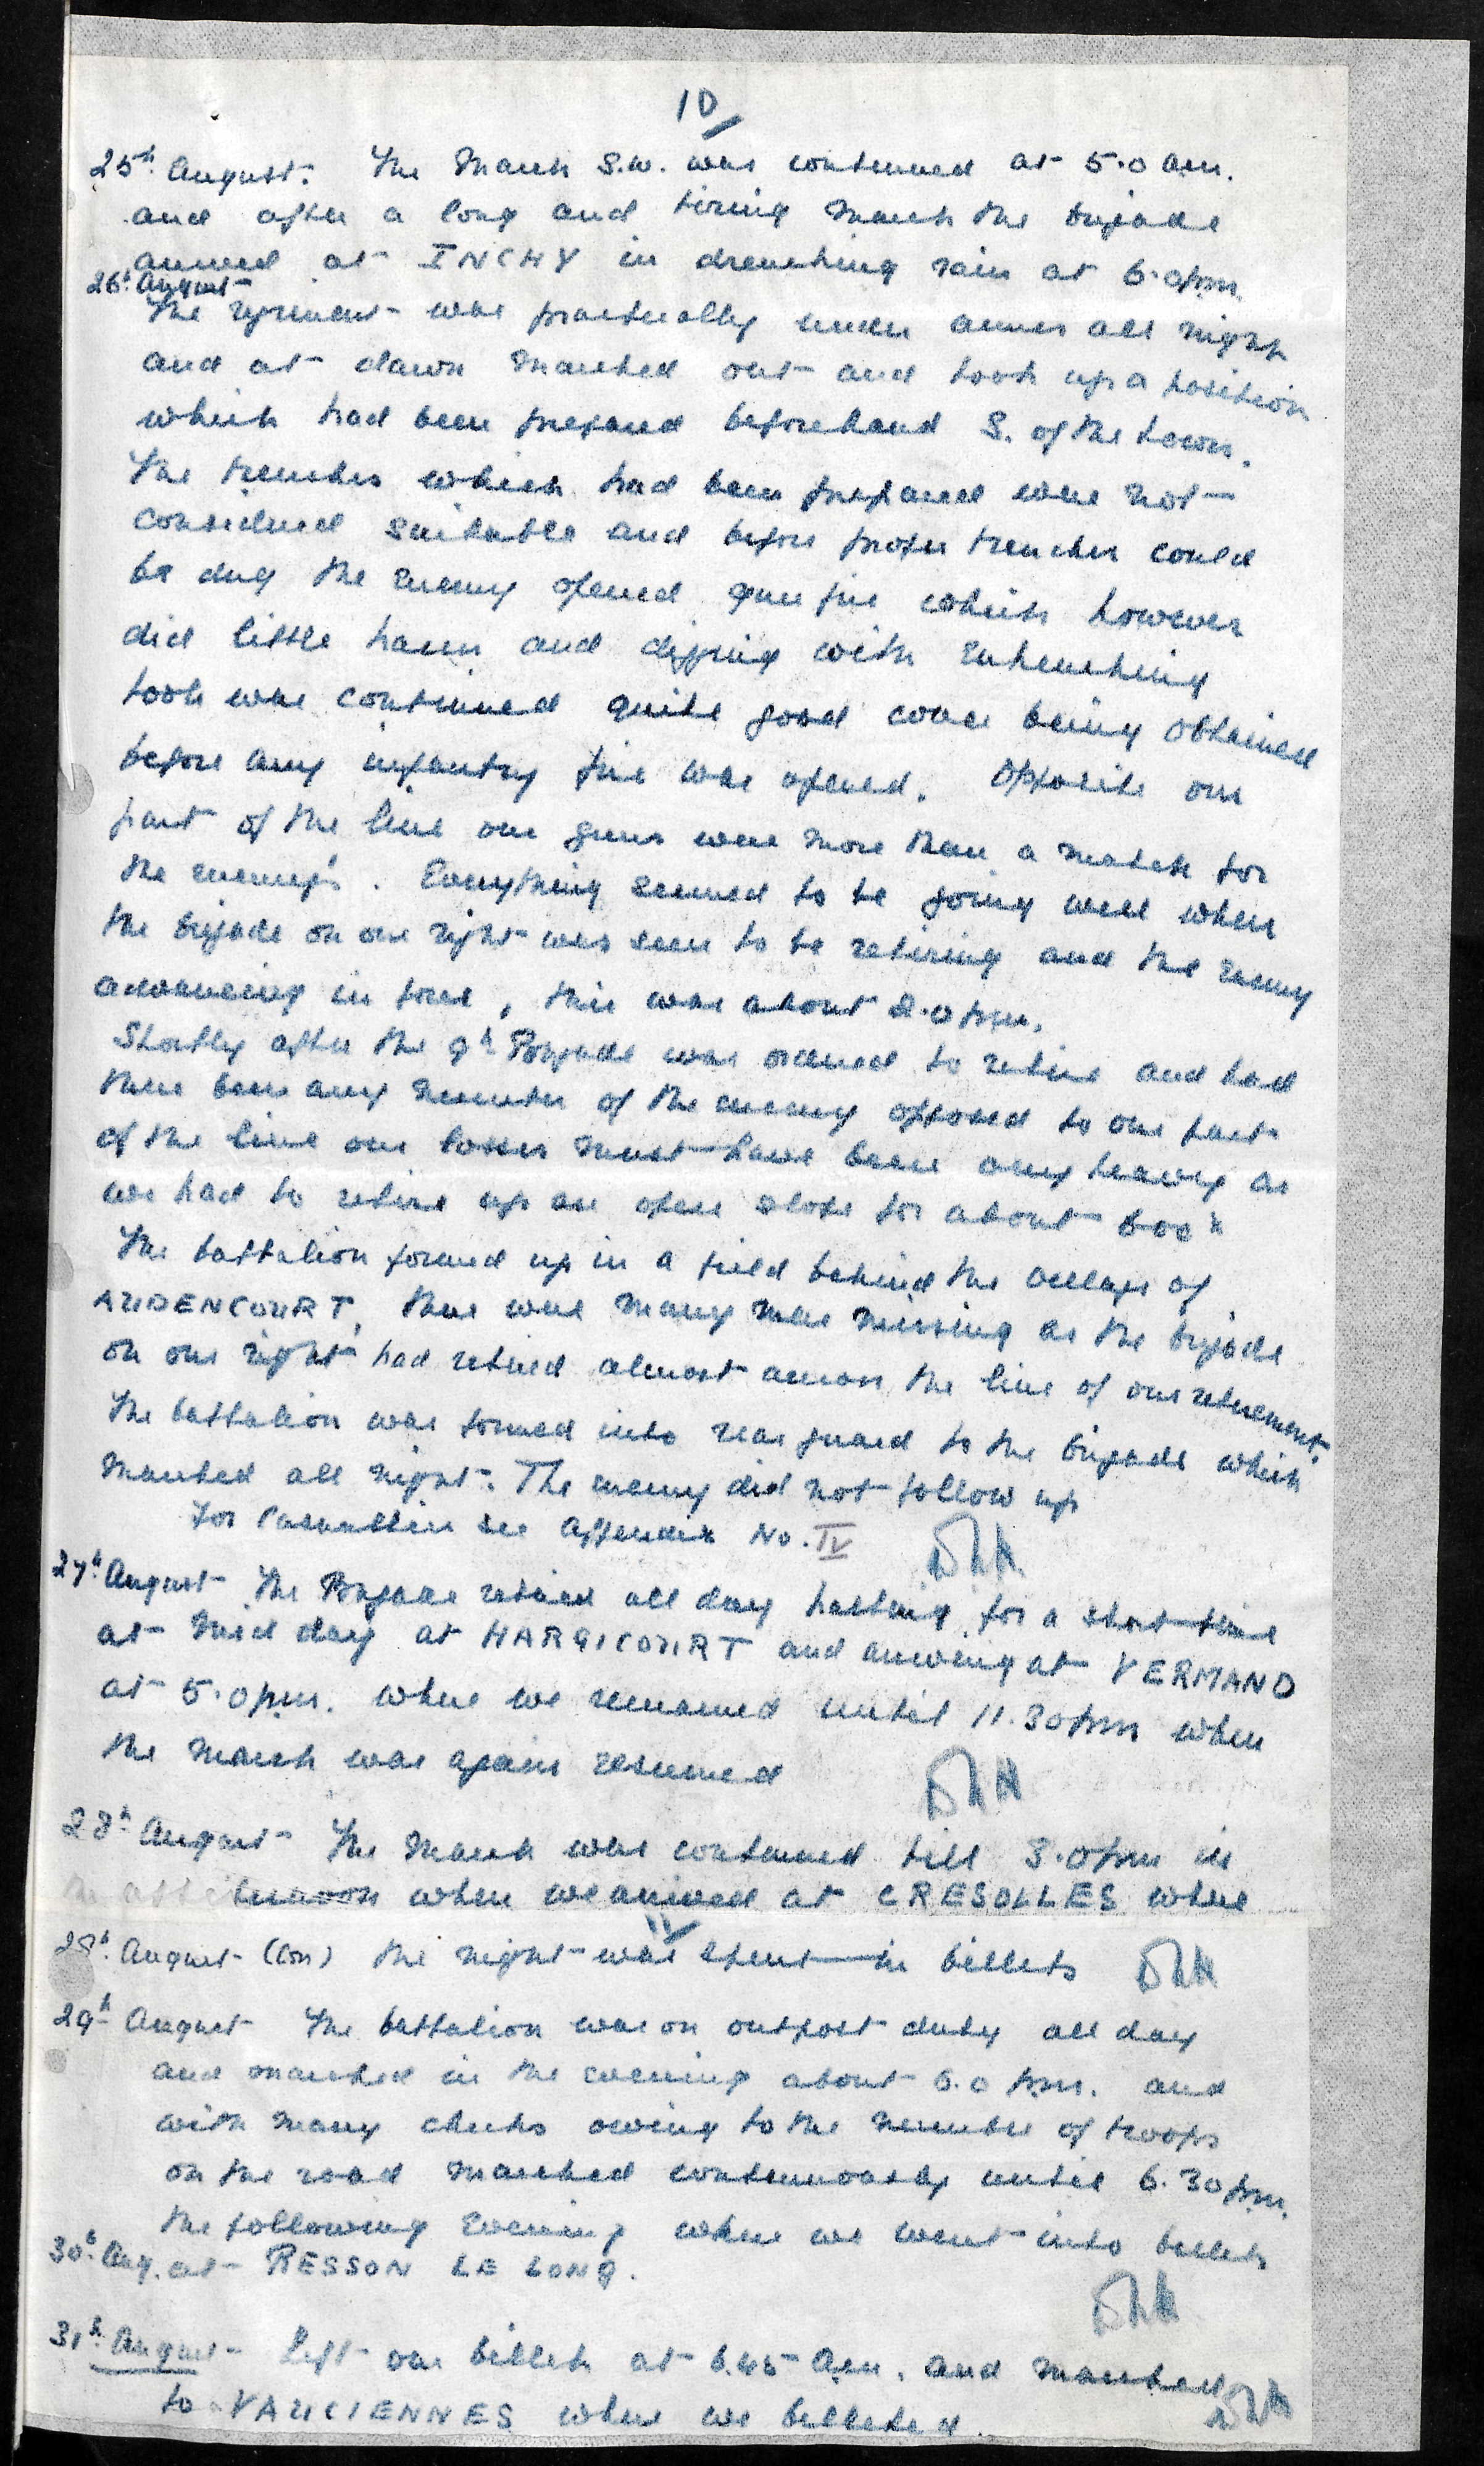 10/
25th August. The March S.W. was continued at 5.0 am.
and after a long and tiring march the brigade
arrived at INCHY in drenching rain at 6.0pm.
26th August
The regiment was practically under arms all night
and at dawn marched out and took up a position
which had been prepared beforehand S. of the town.
The trenches which had been prepared were not
considered suitable and before proper trenches could
be dug the enemy opened gun fire which however
did little harm and digging with entrenching
tools was continued quite good cover being obtained
before any infantry fire was opened. Opposite our
part of the line our guns were more than a match for
the enemy's. Everything seemed to be going well when
the brigade on our right was seen to be retiring and the enemy
advancing in force, this was about 2.0 pm.
Shortly after the 9th Brigade was ordered to retire and had
there been any number of the enemy opposed to our part
of the line our losses must have been very heavy as
we had to retire up an open slope for about 600x
The battalion formed up in a field behind the village of
AUDENCOURT, there were many men missing as the brigade
on our right had retired almost across the line of our retirement.
The battalion was formed into rear guard to the brigade which
marched all night. The enemy did not follow up
For Casualties see Appendix No. IV
27th August The Brigade retired all day halting for a short time
at mid day at HARGICOURT and arriving at VERMAND
at 5.0pm. where we remained until 11.30pm when
the march was again resumed
28th August The March was continued till 3.0pm in
the afternoon when we arrived at CRESOLLES where
11/
28th August (Con) the night was spent in billets
29th August The battalion was on outpost duty all day
and marched in the evening about 6.0 pm. and
with many checks owing to the number of troops
on the road marched continuously until 6.30pm.
the following evening when we went into billets
30th Aug. at RESSON LE LONG.
31st August Left our billets at 6.45 am. and marched
to VAUCIENNES where we billeted.